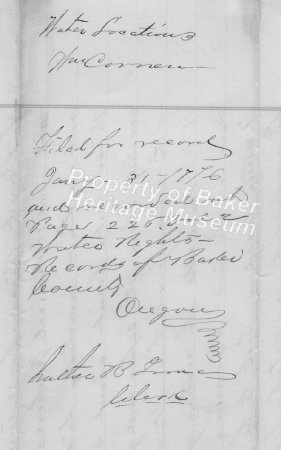 Water Locations
Wm Cornen
Filed for record
Jany 31 - 1776
and recorded
Page 226
Water Rights -
Records of Baker
County
Oregon
B
Clerk
Property of Baker
Heritage Museum